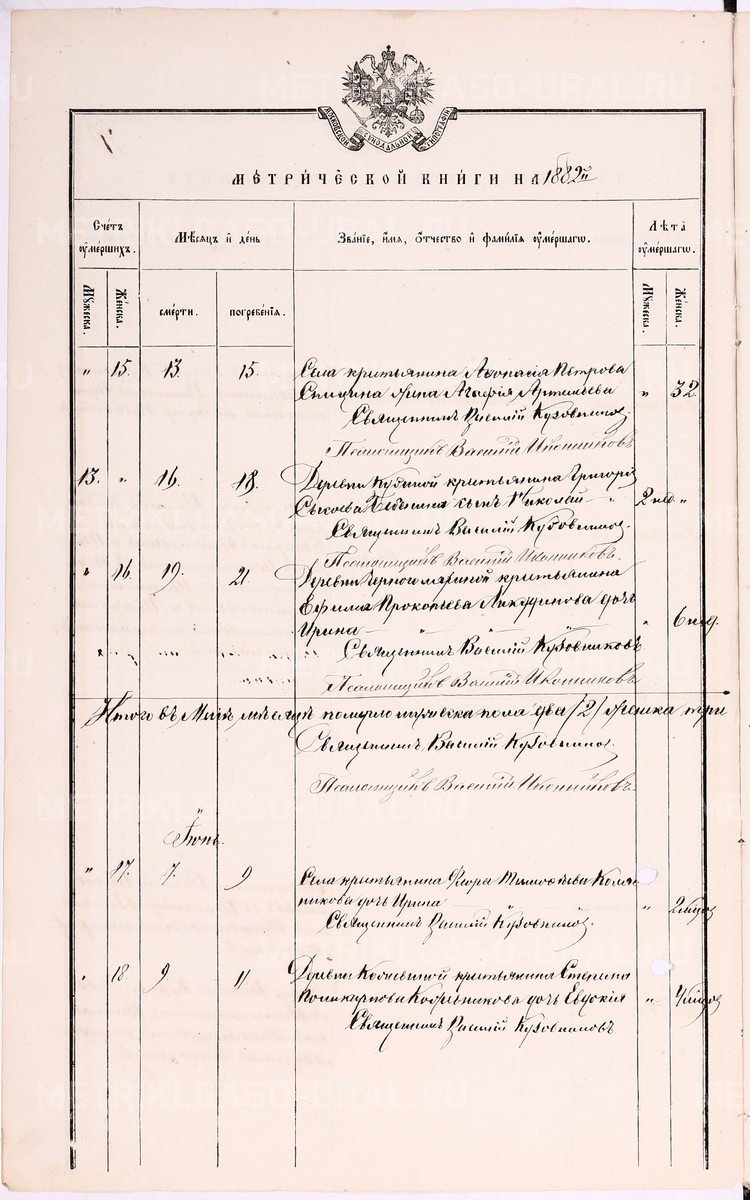 МОСКОВСКОЙ СѴНОДАЛЬНОЙ ТИПОГРАФІИ
МЕТРИ́ЧЕСКОЙ КНИ́ГИ НА 1882й
Сче́тъ ᲂу҆ме́ршихъ.
Мꙋ́жеска.
Же́нска.
Мѣ́сяцъ и҆ де́нь
сме́рти.
погребе́нїѧ.
Зва́нїе, и҆́мѧ, ѻ҆́тчество и҆ фами́лїѧ ᲂу҆ме́ршагѡ.
Лѣ́та ᲂу҆ме́ршагѡ.
Мꙋ́жеска.
Же́нска.
" 15. 13. 15. Села крестьянина Аѳонасія Петрова
жена Агафія Артемьева " 32
Священникъ Василій Кузовниковъ.
Псаломщикъ Василій Иконниковъ
13. " 16. 18. Деревни крестьянина Григорія
Сысоева сынъ Николай " 2 нед. "
Священникъ Василій Кузовниковъ.
Псаломщикъ Василій Иконниковъ.
" 16. 19. 21. Деревни крестьянина
Ефима Прокопьева дочь
Ирина " " " 6 нед.
Священникъ Василій Кузовниковъ
Псаломщикъ Василій Иконниковъ
Итого въ Маѣ мѣсяцѣ померло мужеска пола два /2/ женска три
Священникъ Василій Кузовниковъ.
Псаломщикъ Василій Иконниковъ.
Іюнь.
" 17. 7. 9 Села крестьянина Флора Тимоѳеева Коля-
никова дочь Ирина " "
Священникъ Василій Кузовниковъ.
" 18. 9 11 Деревни крестьянина Степана
Поликарпова дочь Евдокія "
Священникъ Василій Кузовниковъ
METRIKI.GASO-URAL.RU